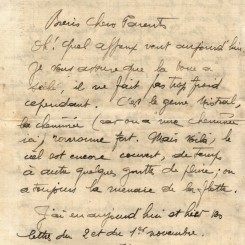 Biens Chers Parents
Oh! Quel affreux vent aujourd'hui.
Je vous assure que la boue a
séché, il ne fait pas trop froid
cependant. C'est le genre Mistral,
la cheminée (car on a une cheminée
ici) ronronne fort. Mais voilà, le
ciel est encore couvert, de temps
à autre quelques goutte de pluie; on
a toujours la menace de la flotte.
J'ai eu aujourd'hui et hier vos
lettre du 2 et du 1er novembre.